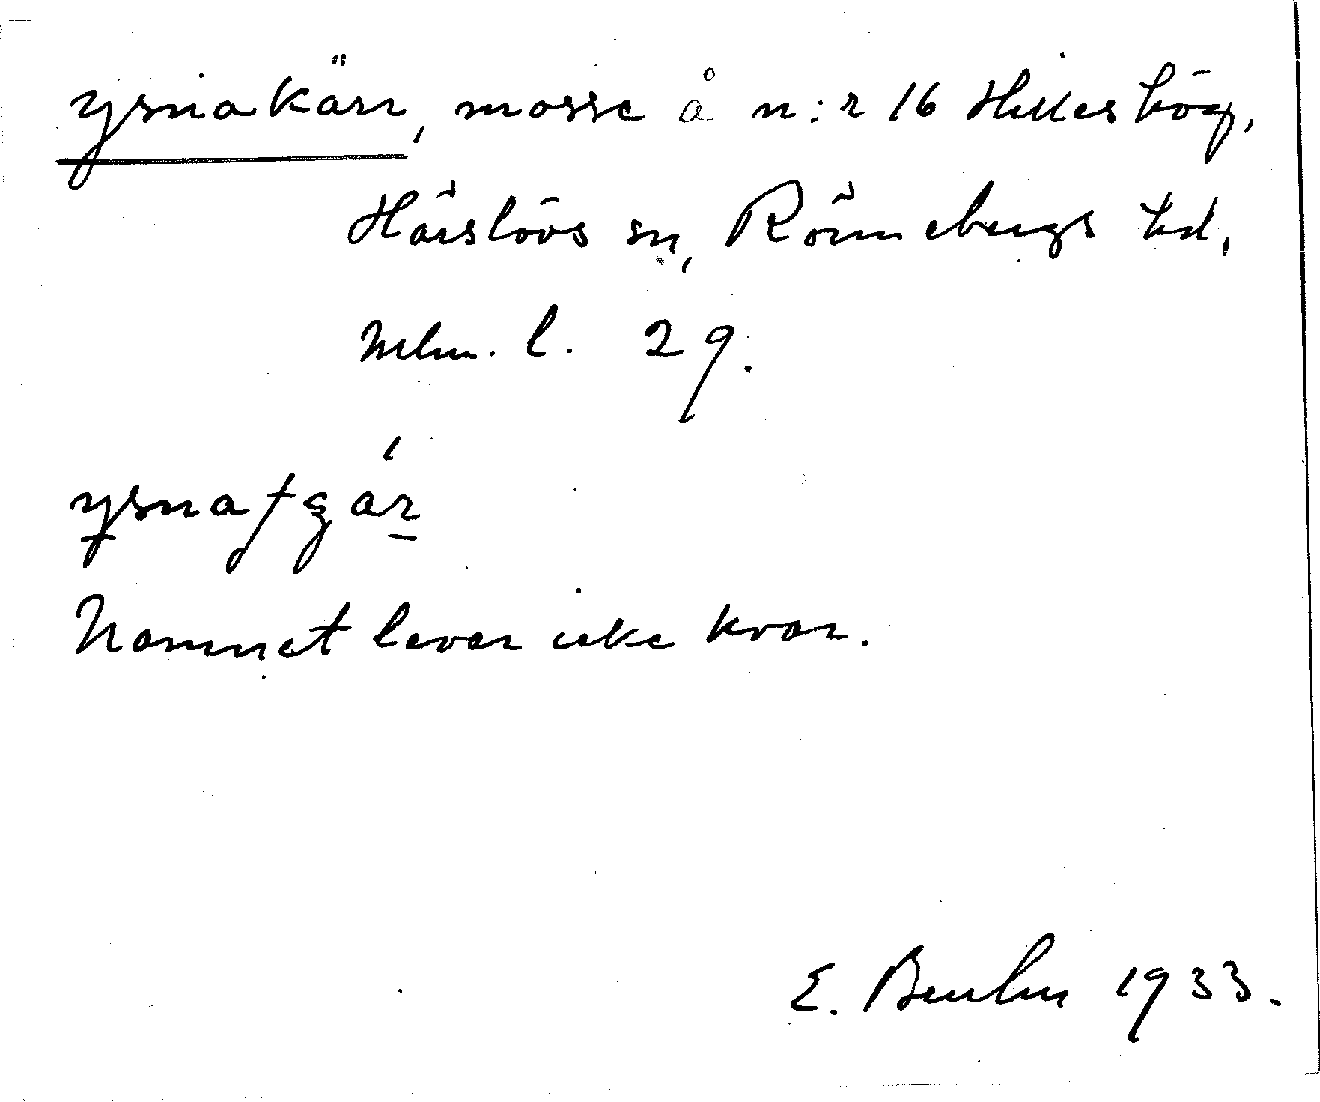 ysnakärr, mosse å n:r 16 Hilleshög,
Härslövs sn, Rönnebergs hd,
Mlm. l. 29.
Namnet lever icke kvar.
E. 1933.